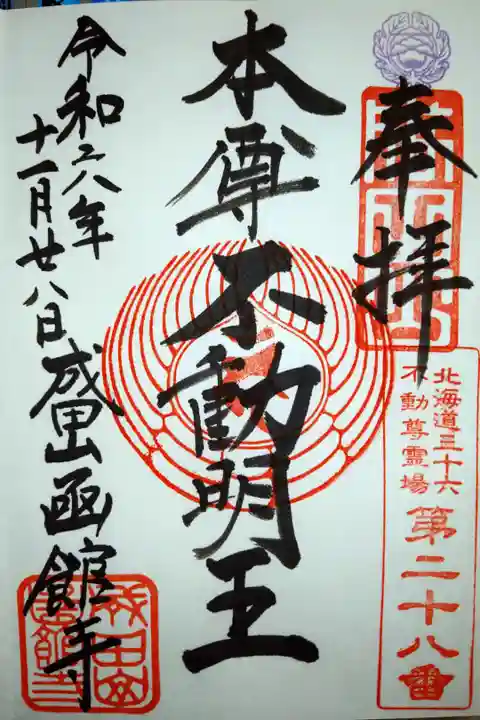 奉拝
北海道三十六
不動尊霊場
第二十八番
本尊不動明王
令和六年
十一月廿八日
成田山函館寺